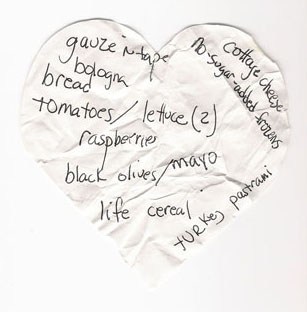 gauze n-tape
bologna
bread
tomatoes/lettuce (2)
raspberries
black olives/mayo
life cereal
cottage cheese
no-sugar-added
turkey pastrami